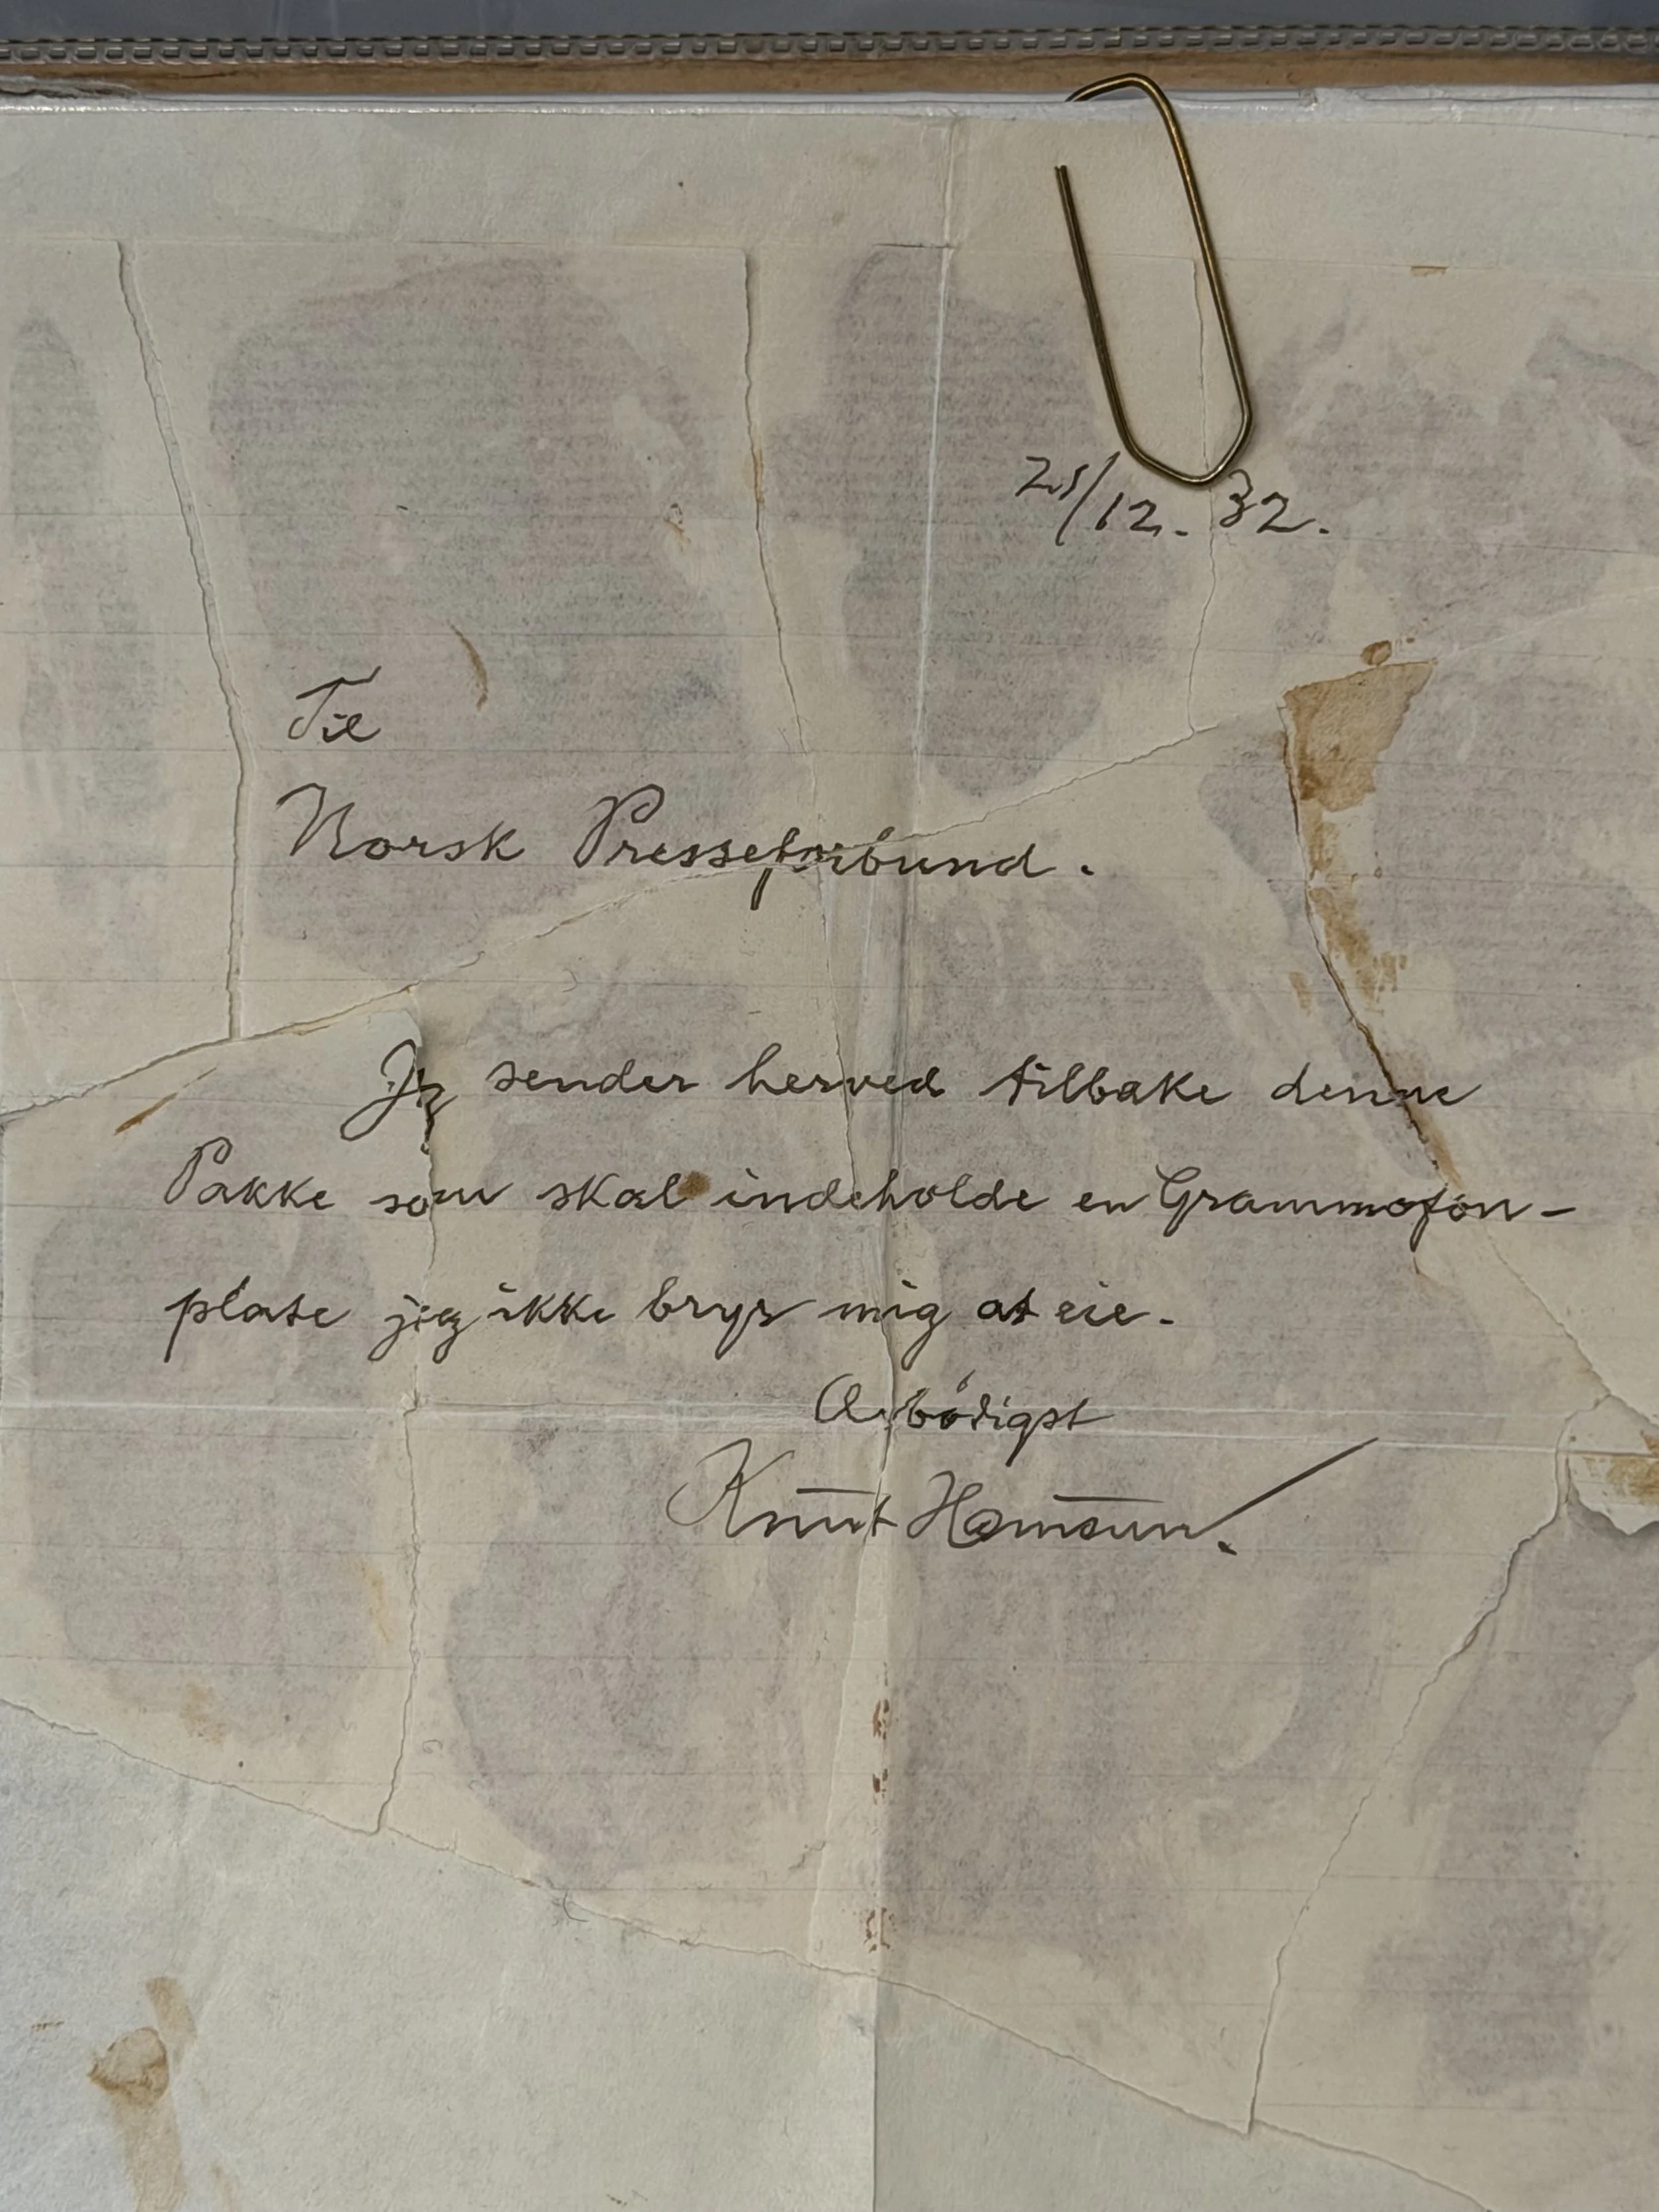 21/12. 32.
Til
Norsk Presseforbund.
Jeg sender herved tilbake denne
Pakke som skal indeholde en Grammofon-
plate jeg ikke bryr mig at eie.
Ærbødigst
Knut Hamsun.